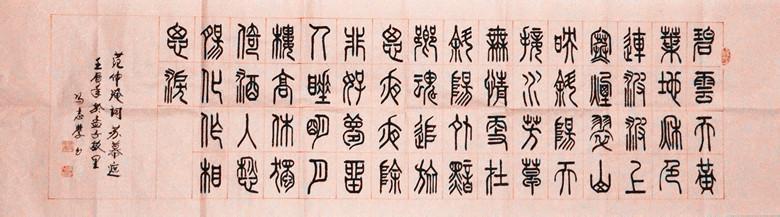 碧雲天黃
葉地秋色
連波波上
寒煙翠山
映斜陽天
接水芳草
無情更在
斜陽外黯
鄉魂追旅
思夜夜除
非好夢留
人睡明月
樓高休獨
倚酒入愁
腸化作相
思淚
范仲淹詞蘇幕遮
壬辰年於孟子故里